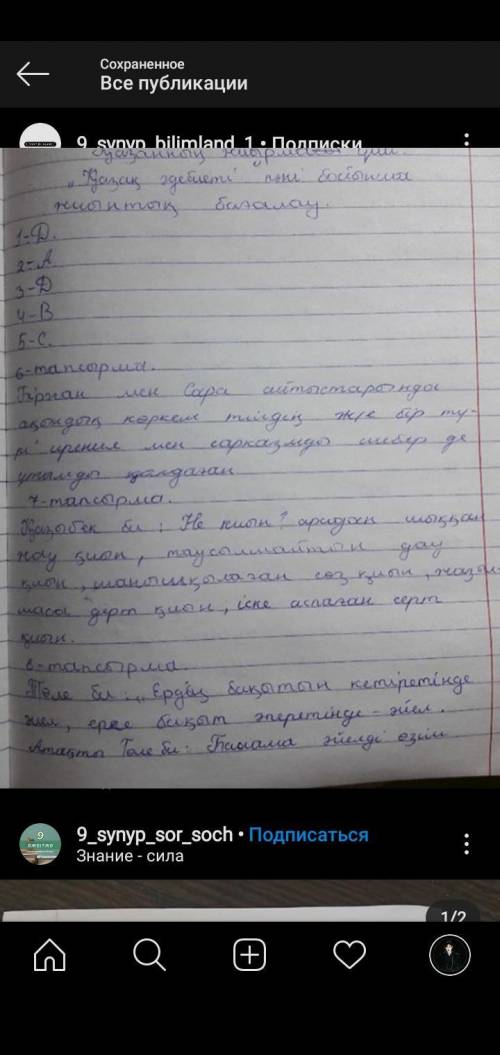 Сохраненное
Все публикации
9_synyp_bilimland_1 • Подписки
Қазанның жиырмасы күні.
„Қазақ әдебиеті" пәні бойынша
жиынтық бағалау.
1-D.
2-A
3-D
4-B
5-C.
6-тапсырма.
Біржан мен Сара айтыстарында
ақындық көркем тілдің және бір тү-
рі ирония мен сарказмды шебер де
ұтымды қолданған
7-тапсырма.
Қазыбек би: Не қиын? арадан шыққан
жау қиын, таусылмайтын дау
қиын, шанышқылаған сөз қиын, жазыл-
маса дерт қиын, іске аспаған серт
қиын.
8-тапсырма.
Төле би: „Ердің бақытын кетіретінде
әйел, ерге бақыт әперетінде - әйел.
Атақты Төле би: әйелді өзім
9_synyp_sor_soch • Подписаться
Знание - сила
1/2